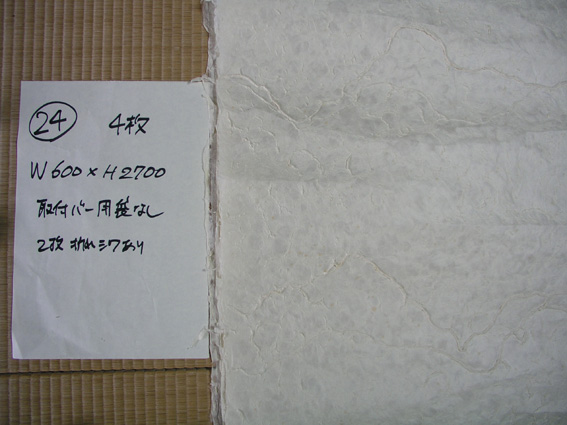 24 4枚
W600×H2700
取付バー用袋なし
2枚 折れシワあり